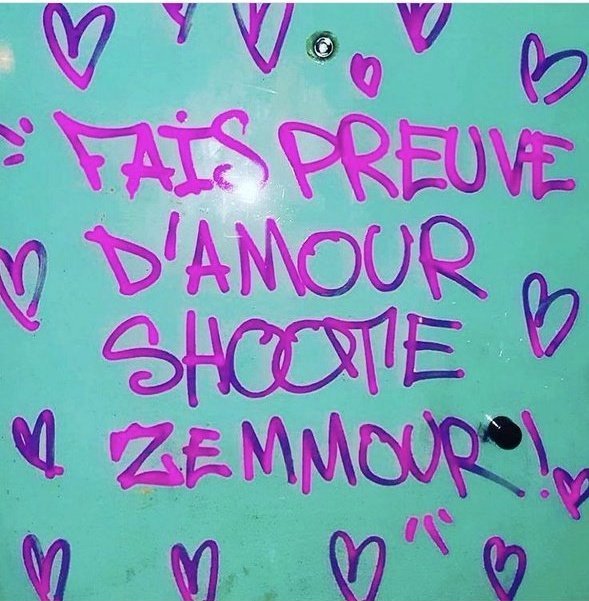 FAIS PREUVE
D'AMOUR
SHOOTE
ZEMMOUR !